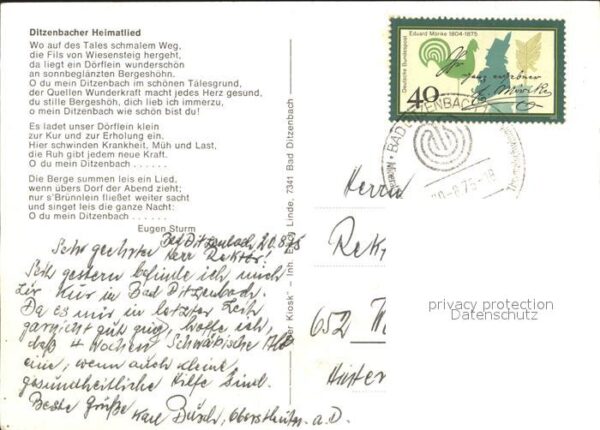 Ditzenbacher Heimatlied
Wo auf des Tales schmalem Weg,
die Fils von Wiesensteig hergeht,
da liegt ein Dörflein wunderschön
an sonnbeglänzten Bergeshöhn.
O du mein Ditzenbach im schönen Tälesgrund,
der Quellen Wunderkraft macht jedes Herz gesund,
du stille Bergeshöh, dich lieb ich immerzu,
o mein Ditzenbach wie schön bist du!
Es ladet unser Dörflein klein
zur Kur und zur Erholung ein.
Hier schwinden Krankheit, Müh und Last,
die Ruh gibt jedem neue Kraft.
O du mein Ditzenbach . . . . . .
Die Berge summen leis ein Lied,
wenn übers Dorf der Abend zieht;
nur s'Brünnlein fließet weiter sacht
und singet leis die ganze Nacht:
O du mein Ditzenbach . . . . . .
Eugen Sturm
Bad Ditzenbach 20.8.75
Sehr geehrter Herr Rektor!
Seit gestern befinde ich mich
zur Kur in Bad Ditzenbach.
Da es mir in letzter Zeit
garnicht gut ging, hoffe ich,
daß 4 Wochen Schwäbische Alb
eine, wenn auch kleine
gesundheitliche Hilfe sind.
Beste Grüße
Karl Büsch, Oberstleutn. a. D.
er Kiosk" – Inh. Edith Linde, 7341 Bad Ditzenbach
Eduard Mörike 1804-1875
Deutsche Bundespost
40
BAD DITZENBACH
-8.75-18
Herrn
Rek
652
privacy protection
Datenschutz